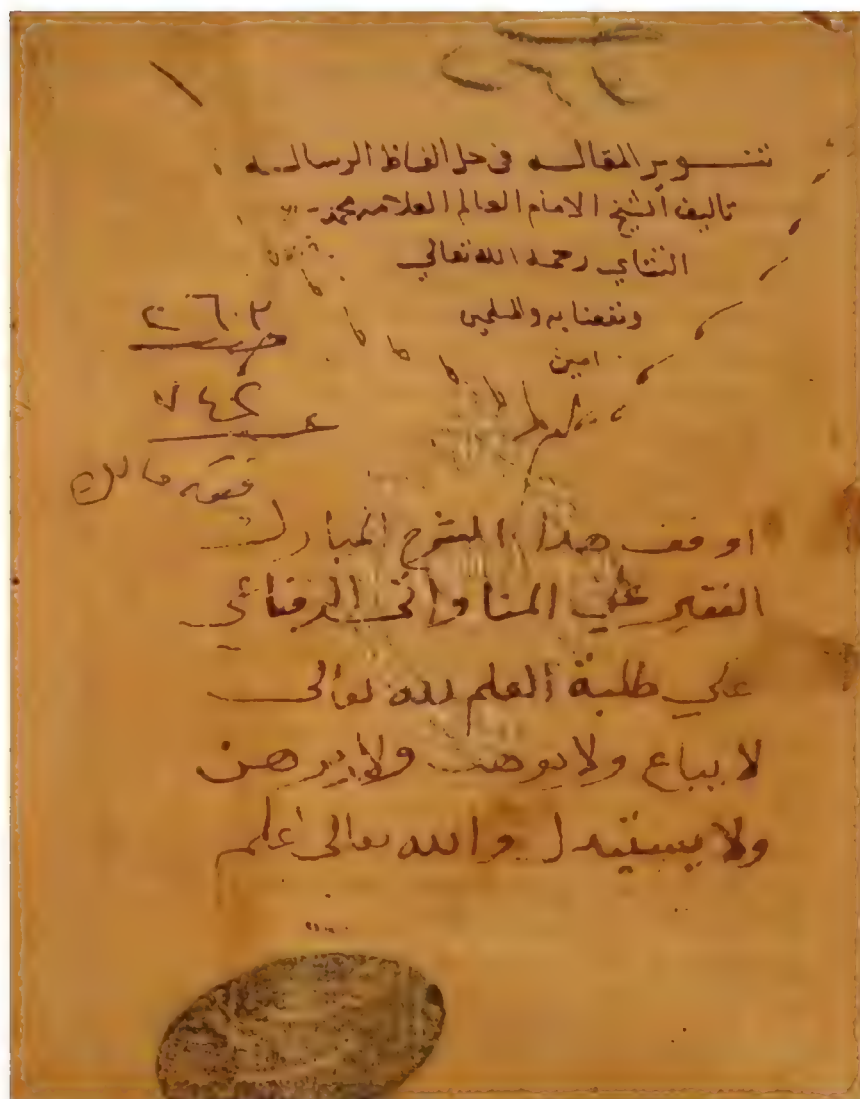 تنوير المقاله فى حل الفاظ الرساله
تاليف الشيخ الامام العالم العلامه محمد
التتاي رحمه الله تعالي
ونفعنا به والمسلمين
امين
٢٦٠٢
٧٤٢
فقه مالك
اوقف هذا الشرح المبارك
الفقير علي المناواتى
علي طلبة العلم لله تعالى
لا يباع ولا يوهب ولا يرهن
ولا يستبدل والله تعالى أعلم